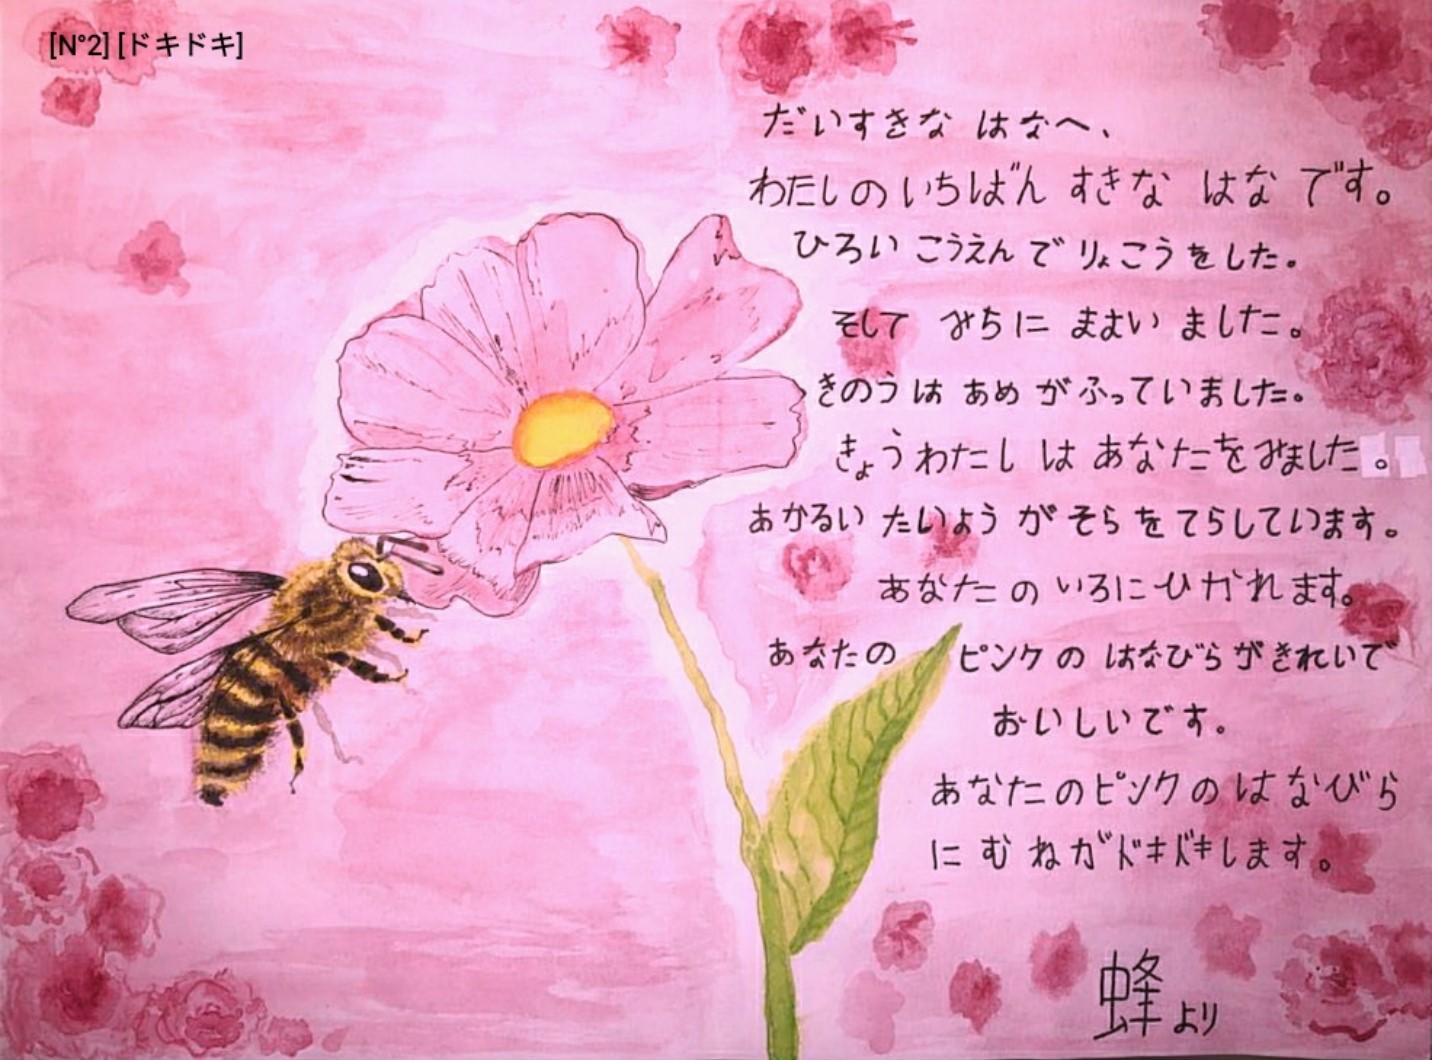 [N°2] [ドキドキ]
だいすきな はなへ、
わたしのいちばん すきな はな です。
ひろい こうえん で りょこうをした。
そして みちに まよい ました。
きのうは あめ がふっていました。
きょうわたし は あなたをみました。
あかるい たいよう が そら を てらしています。
あなた の いろに ひかれます。
あなたの ピンク の はなびらがきれいで
おいしいです。
あなたのピンクの はなびら
に むねがドキドキします。
蜂より